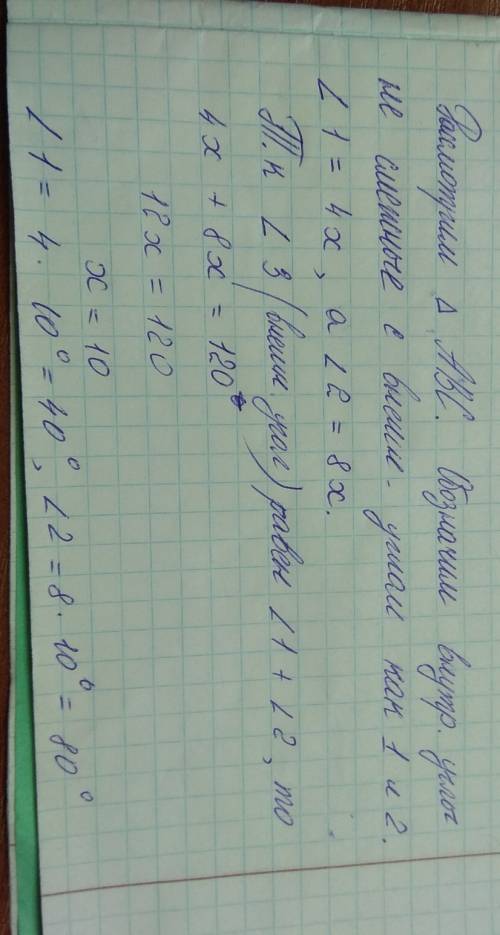 Рассмотрим Δ ABC. Обозначим внутр. углы
не смежные с внешн. углом как 1 и 2.
∠1 = 4x, а ∠2 = 8x.
Т.к ∠3 (внешн. угол) равен ∠1 + ∠2, то
4x + 8x = 120°
12x = 120
x = 10
∠1 = 4 · 10° = 40°, ∠2 = 8 · 10° = 80°